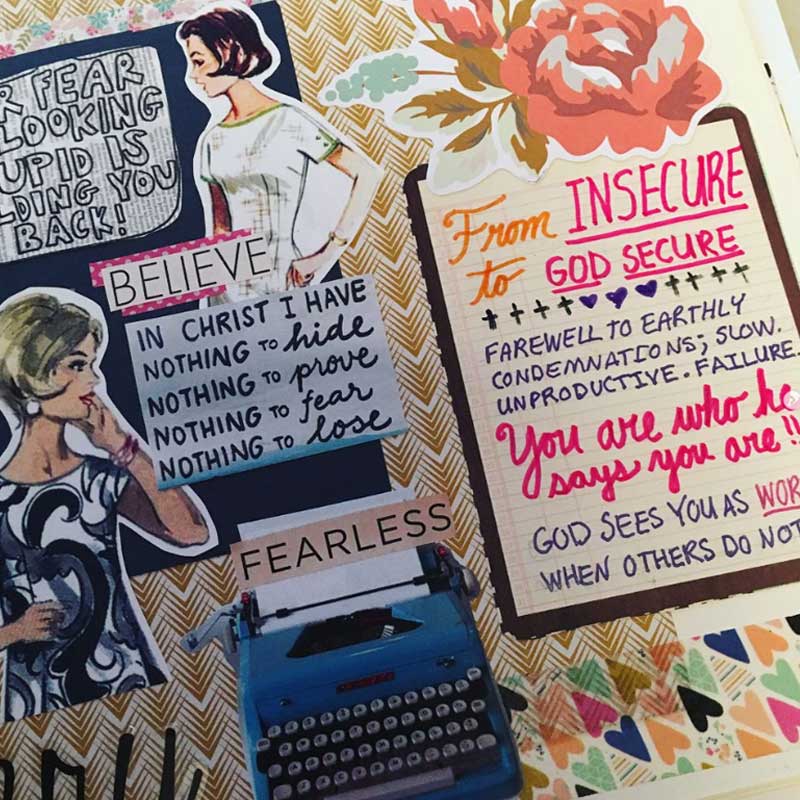 R FEAR
LOOKING
UPID IS
LDING YOU
BACK!
BELIEVE
IN CHRIST I HAVE
NOTHING TO hide
NOTHING TO prove
NOTHING TO fear
NOTHING TO lose
FEARLESS
From INSECURE
to GOD SECURE
FAREWELL TO EARTHLY
CONDEMNATIONS; SLOW.
UNPRODUCTIVE. FAILURE.
You are who he
says you are!!
GOD SEES YOU AS WOR
WHEN OTHERS DO NOT